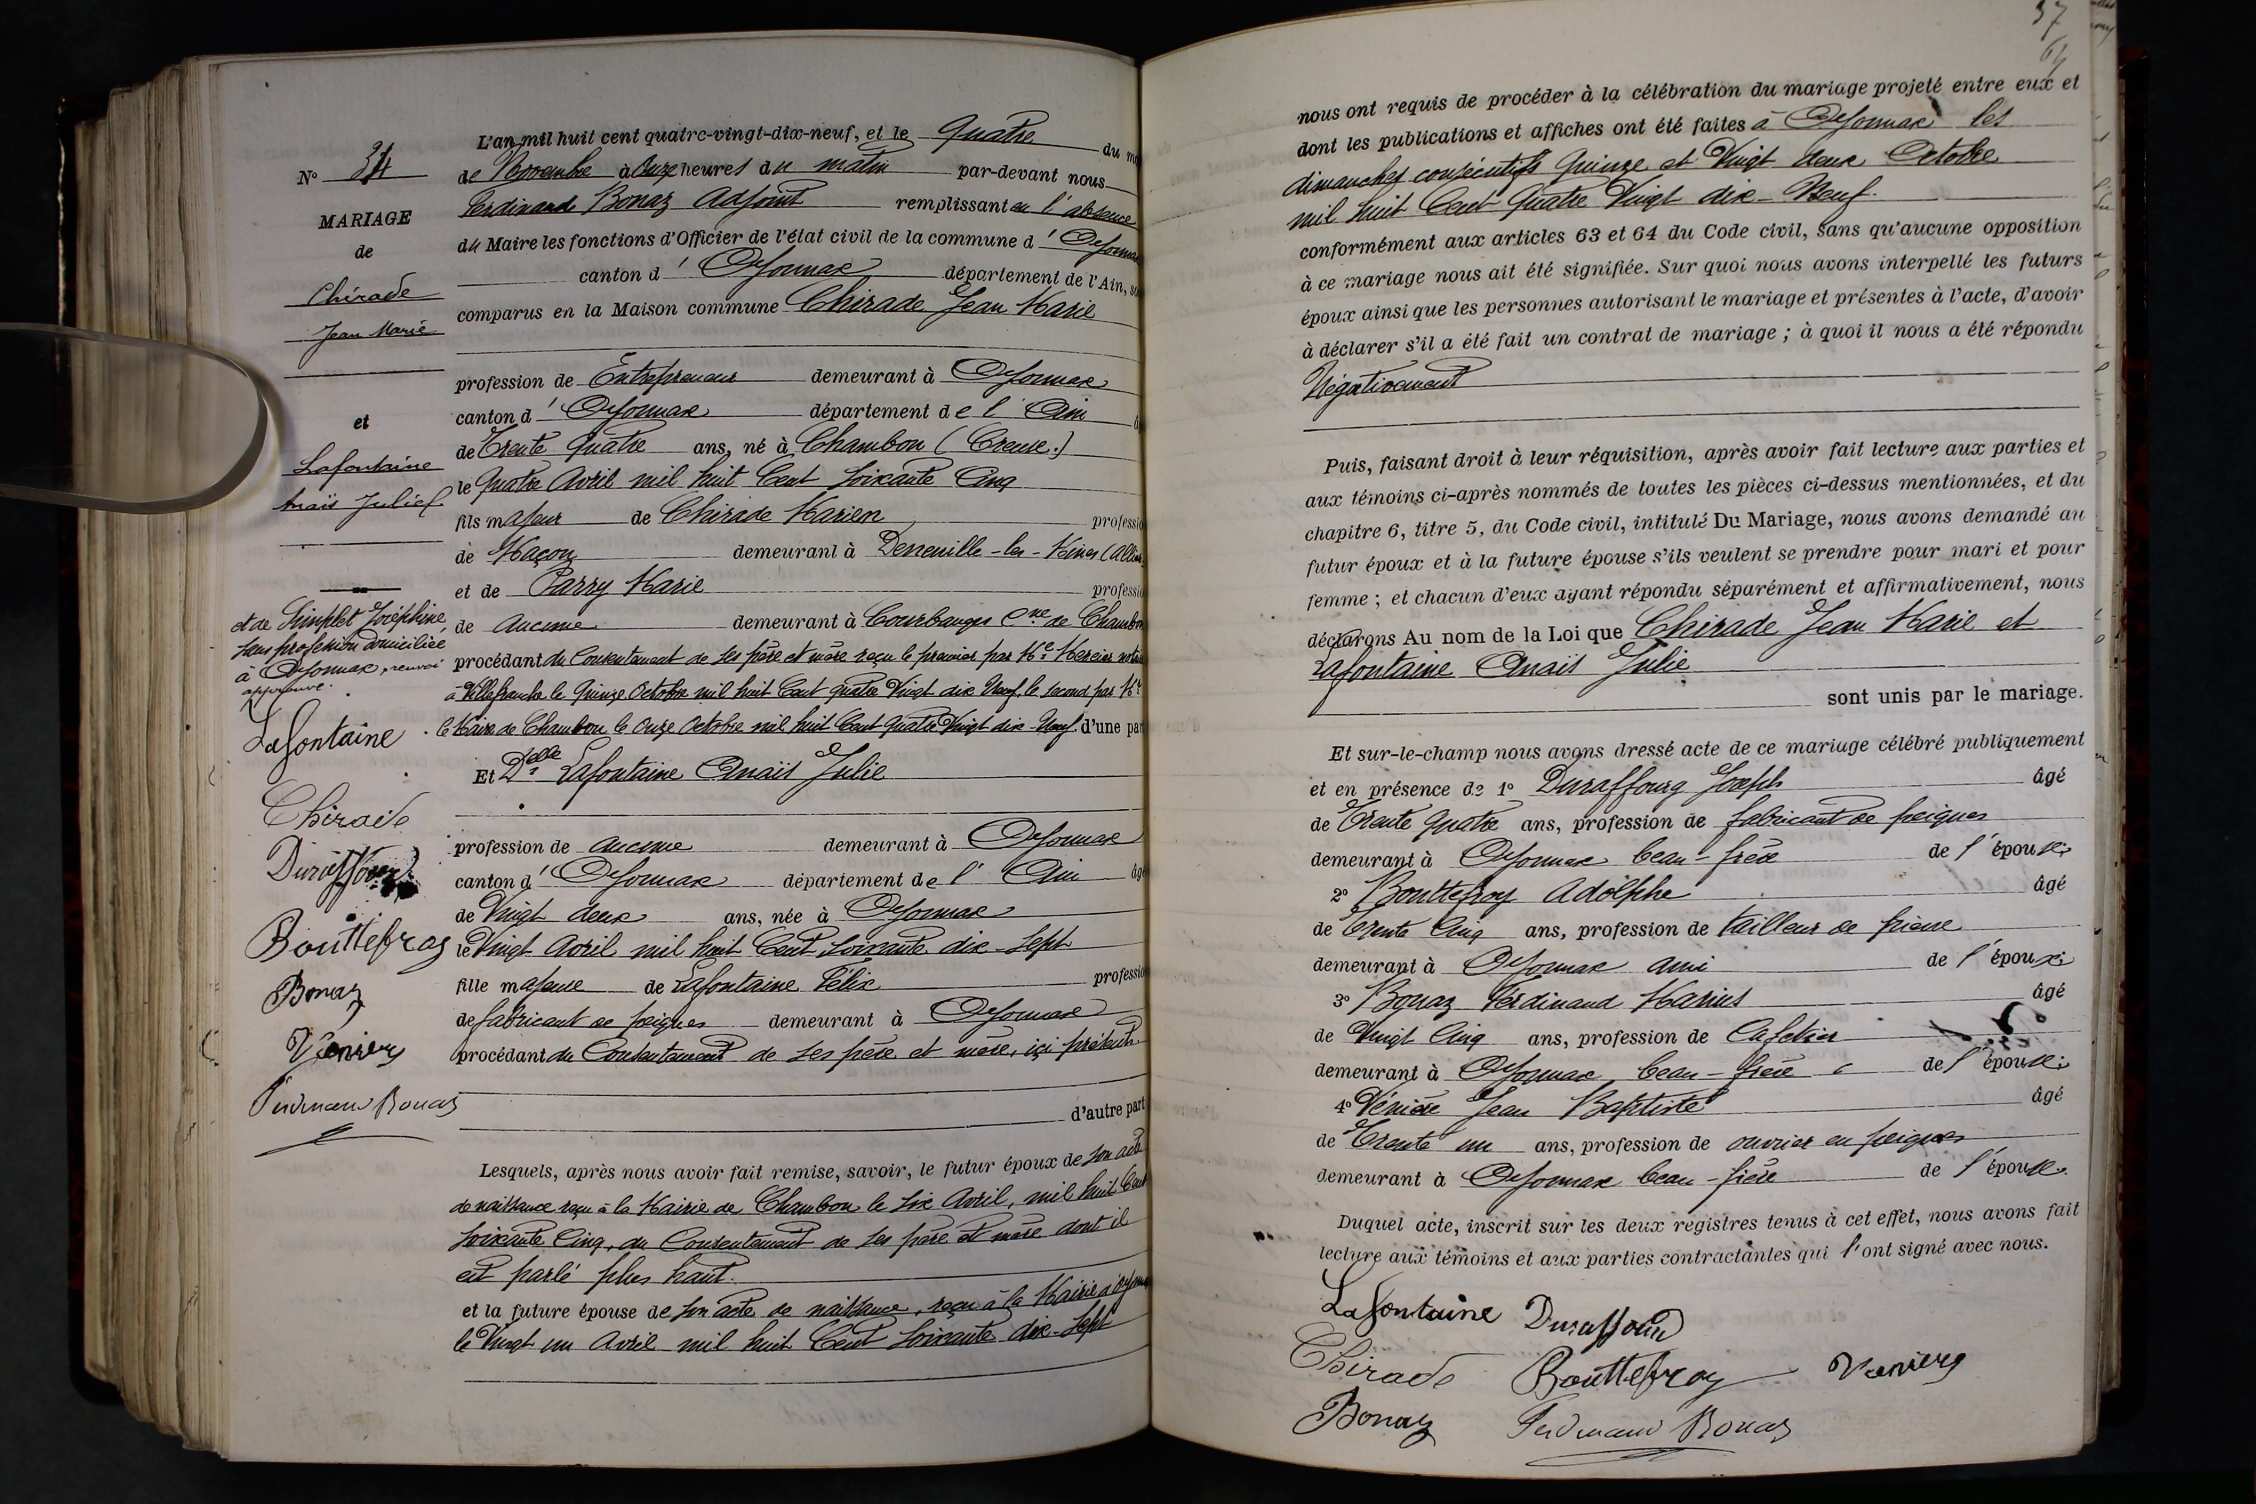 N° 34
MARIAGE
de
Chirade
Jean Marie
et
Lafontaine
Anaïs Julie
et de Simplet Joséphine
sans profession domiciliée
à Oyonnax, renvoi
approuvé.
Lafontaine
Chirade
Duraffourg
Bouttefroy
Bonaz
Ferdinand Bonaz
L'an mil huit cent quatre-vingt-dix-neuf, et le Quatre du
de Novembre à Onze heures du matin par-devant nous
Ferdinand Bonaz Adjoint remplissant en l'absence
du Maire les fonctions d'Officier de l'état civil de la commune d'Oyonnax
canton d'Oyonnax département de l'Ain,
comparus en la Maison commune Chirade Jean Marie
profession de Entrepreneur demeurant à Oyonnax
canton d'Oyonnax département de l'Ain
de Trente Quatre ans, né à Chambon (Creuse.)
le Quatre Avril mil huit Cent soixante Cinq
fils majeur de Chirade Marien professio
de Maçon demeurant à Deneuille-les-Mines (Allier
et de Parry Marie professio
de Aucune demeurant à Courbanges Cne de Chambon
procédant du Consentement de ses père et mère reçu le premier par Me Mercier notaire
à Villefranche le Quinze Octobre mil huit Cent quatre Vingt dix Neuf, le second par Mr
le Maire de Chambon le Onze Octobre mil huit Cent Quatre Vingt dix-Neuf. d'une part
Et Delle Lafontaine Anaïs Julie
profession de aucune demeurant à Oyonnax
canton d'Oyonnax département de l'Ain âgé
de Vingt deux ans, née à Oyonnax
le Vingt Avril mil huit Cent soixante dix-sept
fille majeure de Lafontaine Félix professio
de fabricant de peignes demeurant à Oyonnax
procédant du Consentement de ses père et mère, ici présents
d'autre part
Lesquels, après nous avoir fait remise, savoir, le futur époux de son acte
de naissance reçu à la Mairie de Chambon le six Avril, mil huit Cent
soixante Cinq, du Consentement de ses père et mère dont il
est parlé plus haut.
et la future épouse de son acte de naissance, reçu à la Mairie d'Oyonnax
le Vingt un Avril mil huit Cent soixante dix-sept
37
nous ont requis de procéder à la célébration du mariage projeté entre eux et
dont les publications et affiches ont été faites à Oyonnax les
dimanches consécutifs Quinze et Vingt deux Octobre
mil huit Cent Quatre Vingt dix-Neuf.
conformément aux articles 63 et 64 du Code civil, sans qu'aucune opposition
à ce mariage nous ait été signifiée. Sur quoi nous avons interpellé les futurs
époux ainsi que les personnes autorisant le mariage et présentes à l'acte, d'avoir
à déclarer s'il a été fait un contrat de mariage ; à quoi il nous a été répondu
Négativement
Puis, faisant droit à leur réquisition, après avoir fait lecture aux parties et
aux témoins ci-après nommés de toutes les pièces ci-dessus mentionnées, et du
chapitre 6, titre 5, du Code civil, intitulé Du Mariage, nous avons demandé au
futur époux et à la future épouse s'ils veulent se prendre pour mari et pour
femme ; et chacun d'eux ayant répondu séparément et affirmativement, nous
déclarons Au nom de la Loi que Chirade Jean Marie et
Lafontaine Anaïs Julie
sont unis par le mariage.
Et sur-le-champ nous avons dressé acte de ce mariage célébré publiquement
et en présence de 1° Duraffourg Joseph âgé
de Trente Quatre ans, profession de fabricant de peignes
demeurant à Oyonnax beau-frère de l'épouse;
2° Bouttefroy Adolphe âgé
de trente Cinq ans, profession de tailleur de pierre
demeurant à Oyonnax ami de l'époux;
3° Bonaz Ferdinand Marius âgé
de Vingt Cinq ans, profession de Cafetier
demeurant à Oyonnax beau-frère de l'épouse;
4° Vénière Jean Baptiste âgé
de Trente un ans, profession de ouvrier en peignes
demeurant à Oyonnax beau-frère de l'épouse.
Duquel acte, inscrit sur les deux registres tenus à cet effet, nous avons fait
lecture aux témoins et aux parties contractantes qui l'ont signé avec nous.
Lafontaine Duraffourg
Chirade Bouttefroy
Bonaz Ferdinand Bonaz